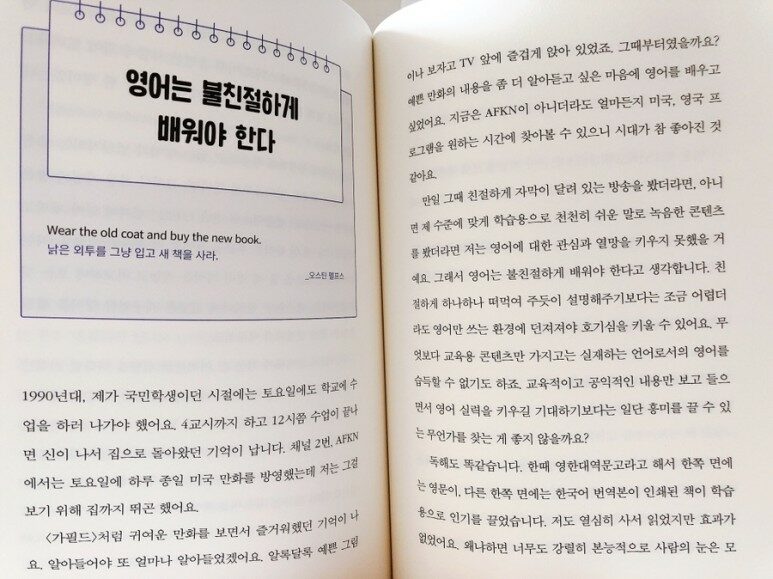 영어는 불친절하게
배워야 한다
Wear the old coat and buy the new book.
낡은 외투를 그냥 입고 새 책을 사라.
_오스틴 펠프스
1990년대, 제가 국민학생이던 시절에는 토요일에도 학교에 수
업을 하러 나가야 했어요. 4교시까지 하고 12시쯤 수업이 끝나
면 신이 나서 집으로 돌아왔던 기억이 납니다. 채널 2번, AFKN
에서는 토요일에 하루 종일 미국 만화를 방영했는데 저는 그걸
보기 위해 집까지 뛰곤 했어요.
〈가필드〉처럼 귀여운 만화를 보면서 즐거워했던 기억이 나
요. 알아들어야 또 얼마나 알아들었겠어요. 알록달록 예쁜 그림
이나 보자고 TV 앞에 즐겁게 앉아 있었죠. 그때부터였을까요?
예쁜 만화의 내용을 좀 더 알아듣고 싶은 마음에 영어를 배우고
싶었어요. 지금은 AFKN이 아니더라도 얼마든지 미국, 영국 프
로그램을 원하는 시간에 찾아볼 수 있으니 시대가 참 좋아진 것
같아요.
만일 그때 친절하게 자막이 달려 있는 방송을 봤더라면, 아니
면 제 수준에 맞게 학습용으로 천천히 쉬운 말로 녹음한 콘텐츠
를 봤더라면 저는 영어에 대한 관심과 열망을 키우지 못했을 거
예요. 그래서 영어는 불친절하게 배워야 한다고 생각합니다. 친
절하게 하나하나 떠먹여 주듯이 설명해주기보다는 조금 어렵더
라도 영어만 쓰는 환경에 던져져야 호기심을 키울 수 있어요. 무
엇보다 교육용 콘텐츠만 가지고는 실재하는 언어로서의 영어를
습득할 수 없기도 하죠. 교육적이고 공익적인 내용만 보고 들으
면서 영어 실력을 키우길 기대하기보다는 일단 흥미를 끌 수 있
는 무언가를 찾는 게 좋지 않을까요?
독해도 똑같습니다. 한때 영한대역문고라고 해서 한쪽 면에
는 영문이, 다른 한쪽 면에는 한국어 번역본이 인쇄된 책이 학습
용으로 인기를 끌었습니다. 저도 열심히 사서 읽었지만 효과가
없었어요. 왜냐하면 너무도 강렬히 본능적으로 사람의 눈은 모